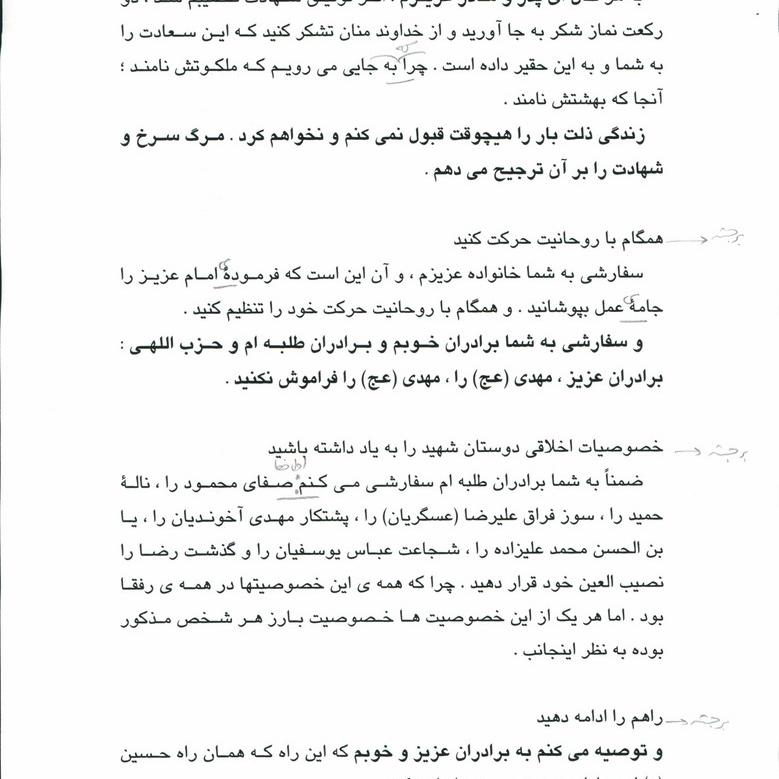 رکعت نماز شکر به جا آورید و از خداوند منان تشکر کنید که این سعادت را
که
به شما و به این حقیر داده است . چرا به جایی می رویم که ملکوتش نامند ؛
آنجا که بهشتش نامند .
زندگی ذلت بار را هیچوقت قبول نمی کنم و نخواهم کرد . مرگ سرخ و
شهادت را بر آن ترجیح می دهم .
همگام با روحانیت حرکت کنید برجسته
سفارشی به شما خانواده عزیزم ، و آن این است که فرمودهٔ امام عزیز را
جامهٔ عمل بپوشانید . و همگام با روحانیت حرکت خود را تنظیم کنید .
و سفارشی به شما برادران خوبم و برادران طلبه ام و حزب اللهی :
برادران عزیز ، مهدی (عج) را ، مهدی (عج) را فراموش نکنید .
خصوصیات اخلاقی دوستان شهید را به یاد داشته باشید برجسته
ضمناً به شما برادران طلبه ام سفارشی می کنم صفای محمود را ، نالهٔ
حمید را ، سوز فراق علیرضا (عسگریان) را ، پشتکار مهدی آخوندیان را ، یا
بن الحسن محمد علیزاده را ، شجاعت عباس یوسفیان را و گذشت رضا را
نصیب العین خود قرار دهید . چرا که همه ی این خصوصیتها در همه ی رفقا
بود . اما هر یک از این خصوصیت ها خصوصیت بارز هر شخص مذکور
بوده به نظر اینجانب .
راهم را ادامه دهید برجسته
و توصیه می کنم به برادران عزیز و خوبم که این راه که همان راه حسین